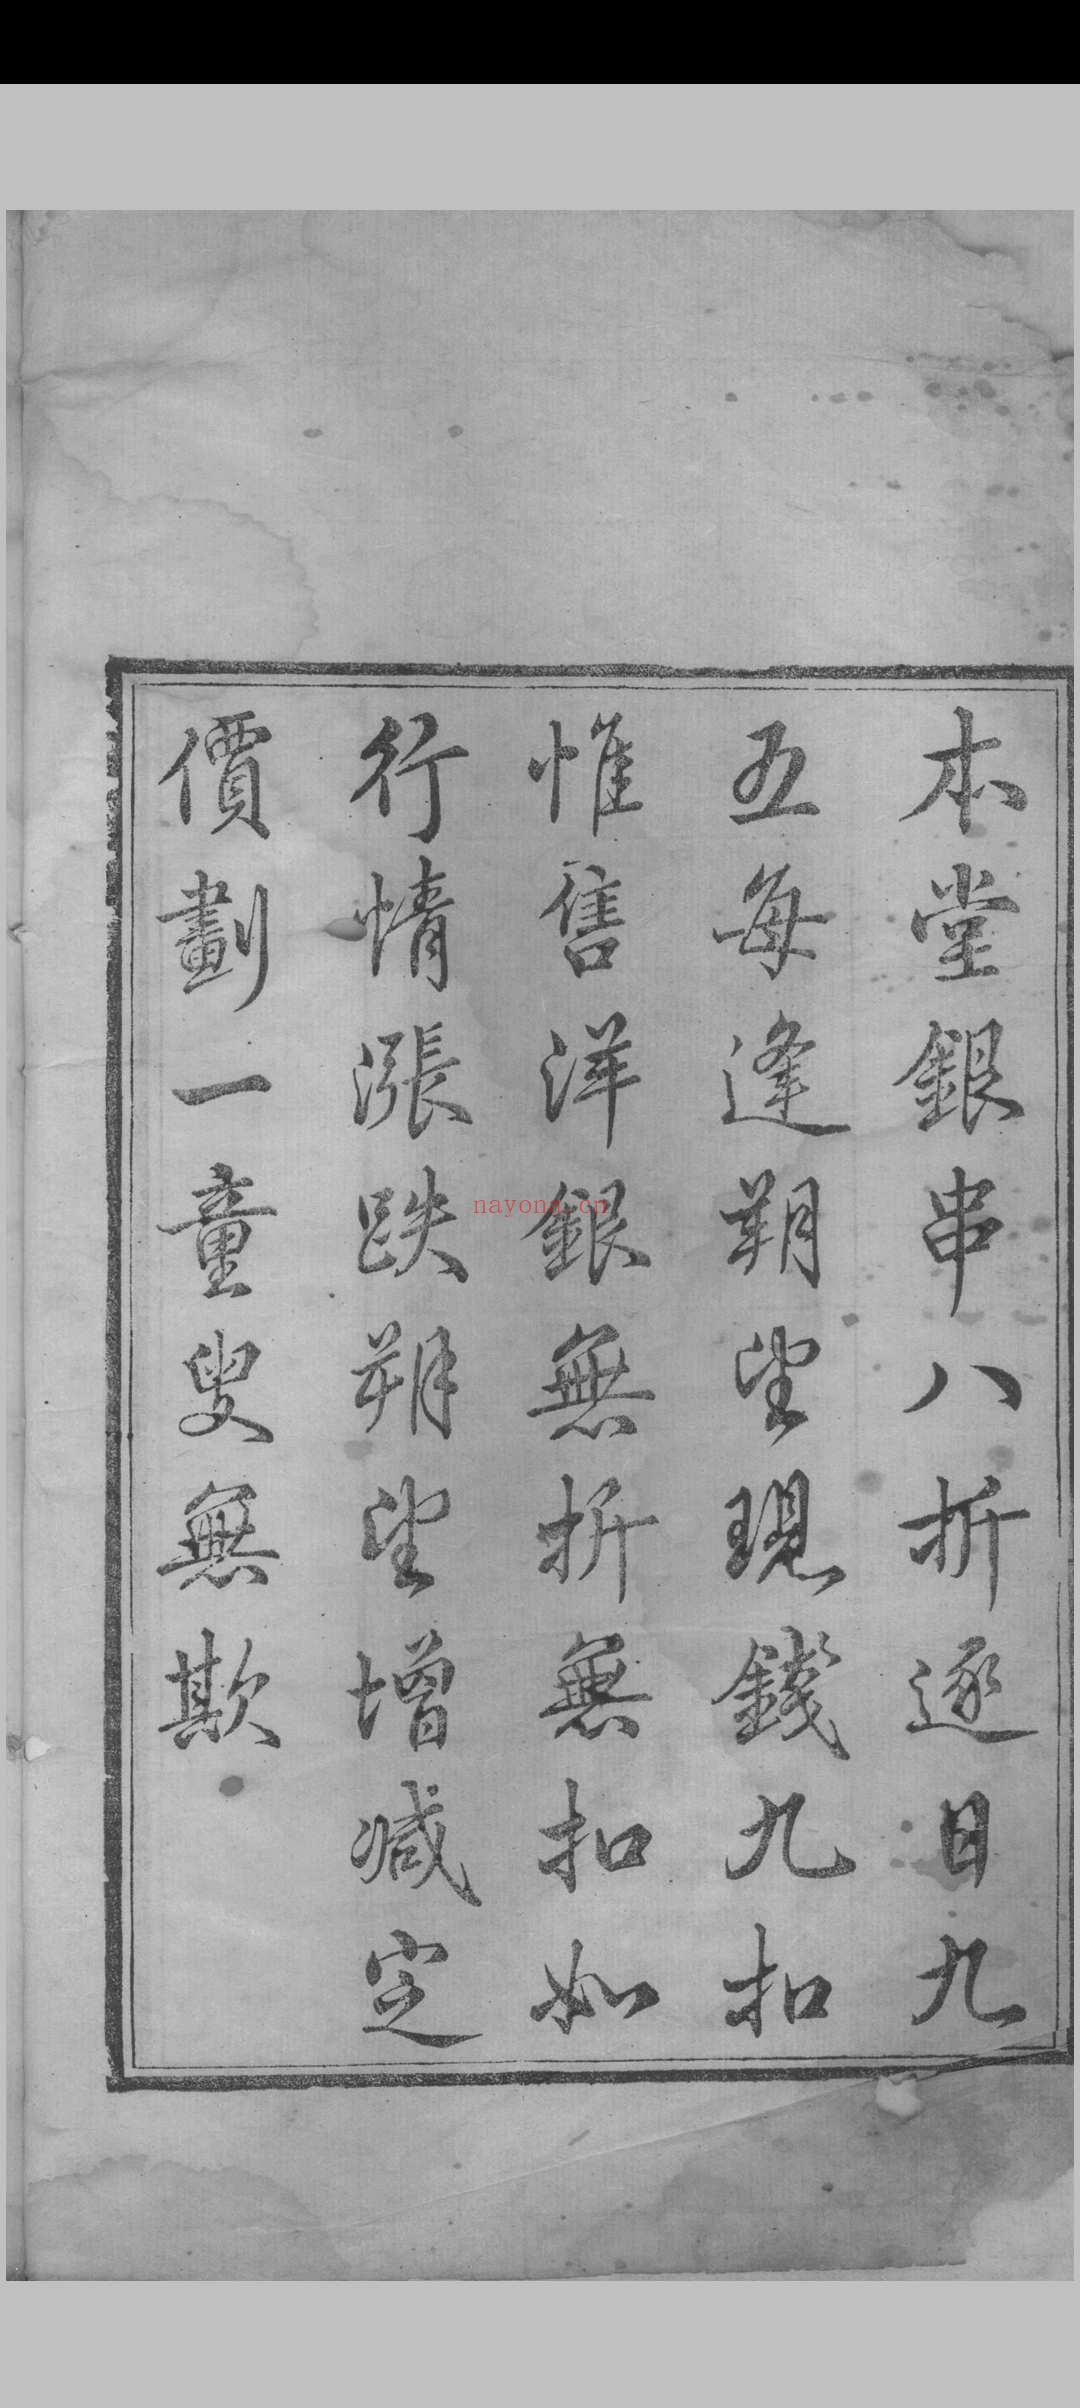 本堂銀串八折逐日九
五每逢朔望現錢九扣
惟售洋銀無折無扣如
行情漲跌朔望增減定
價劃一童叟無欺
nayong.cn